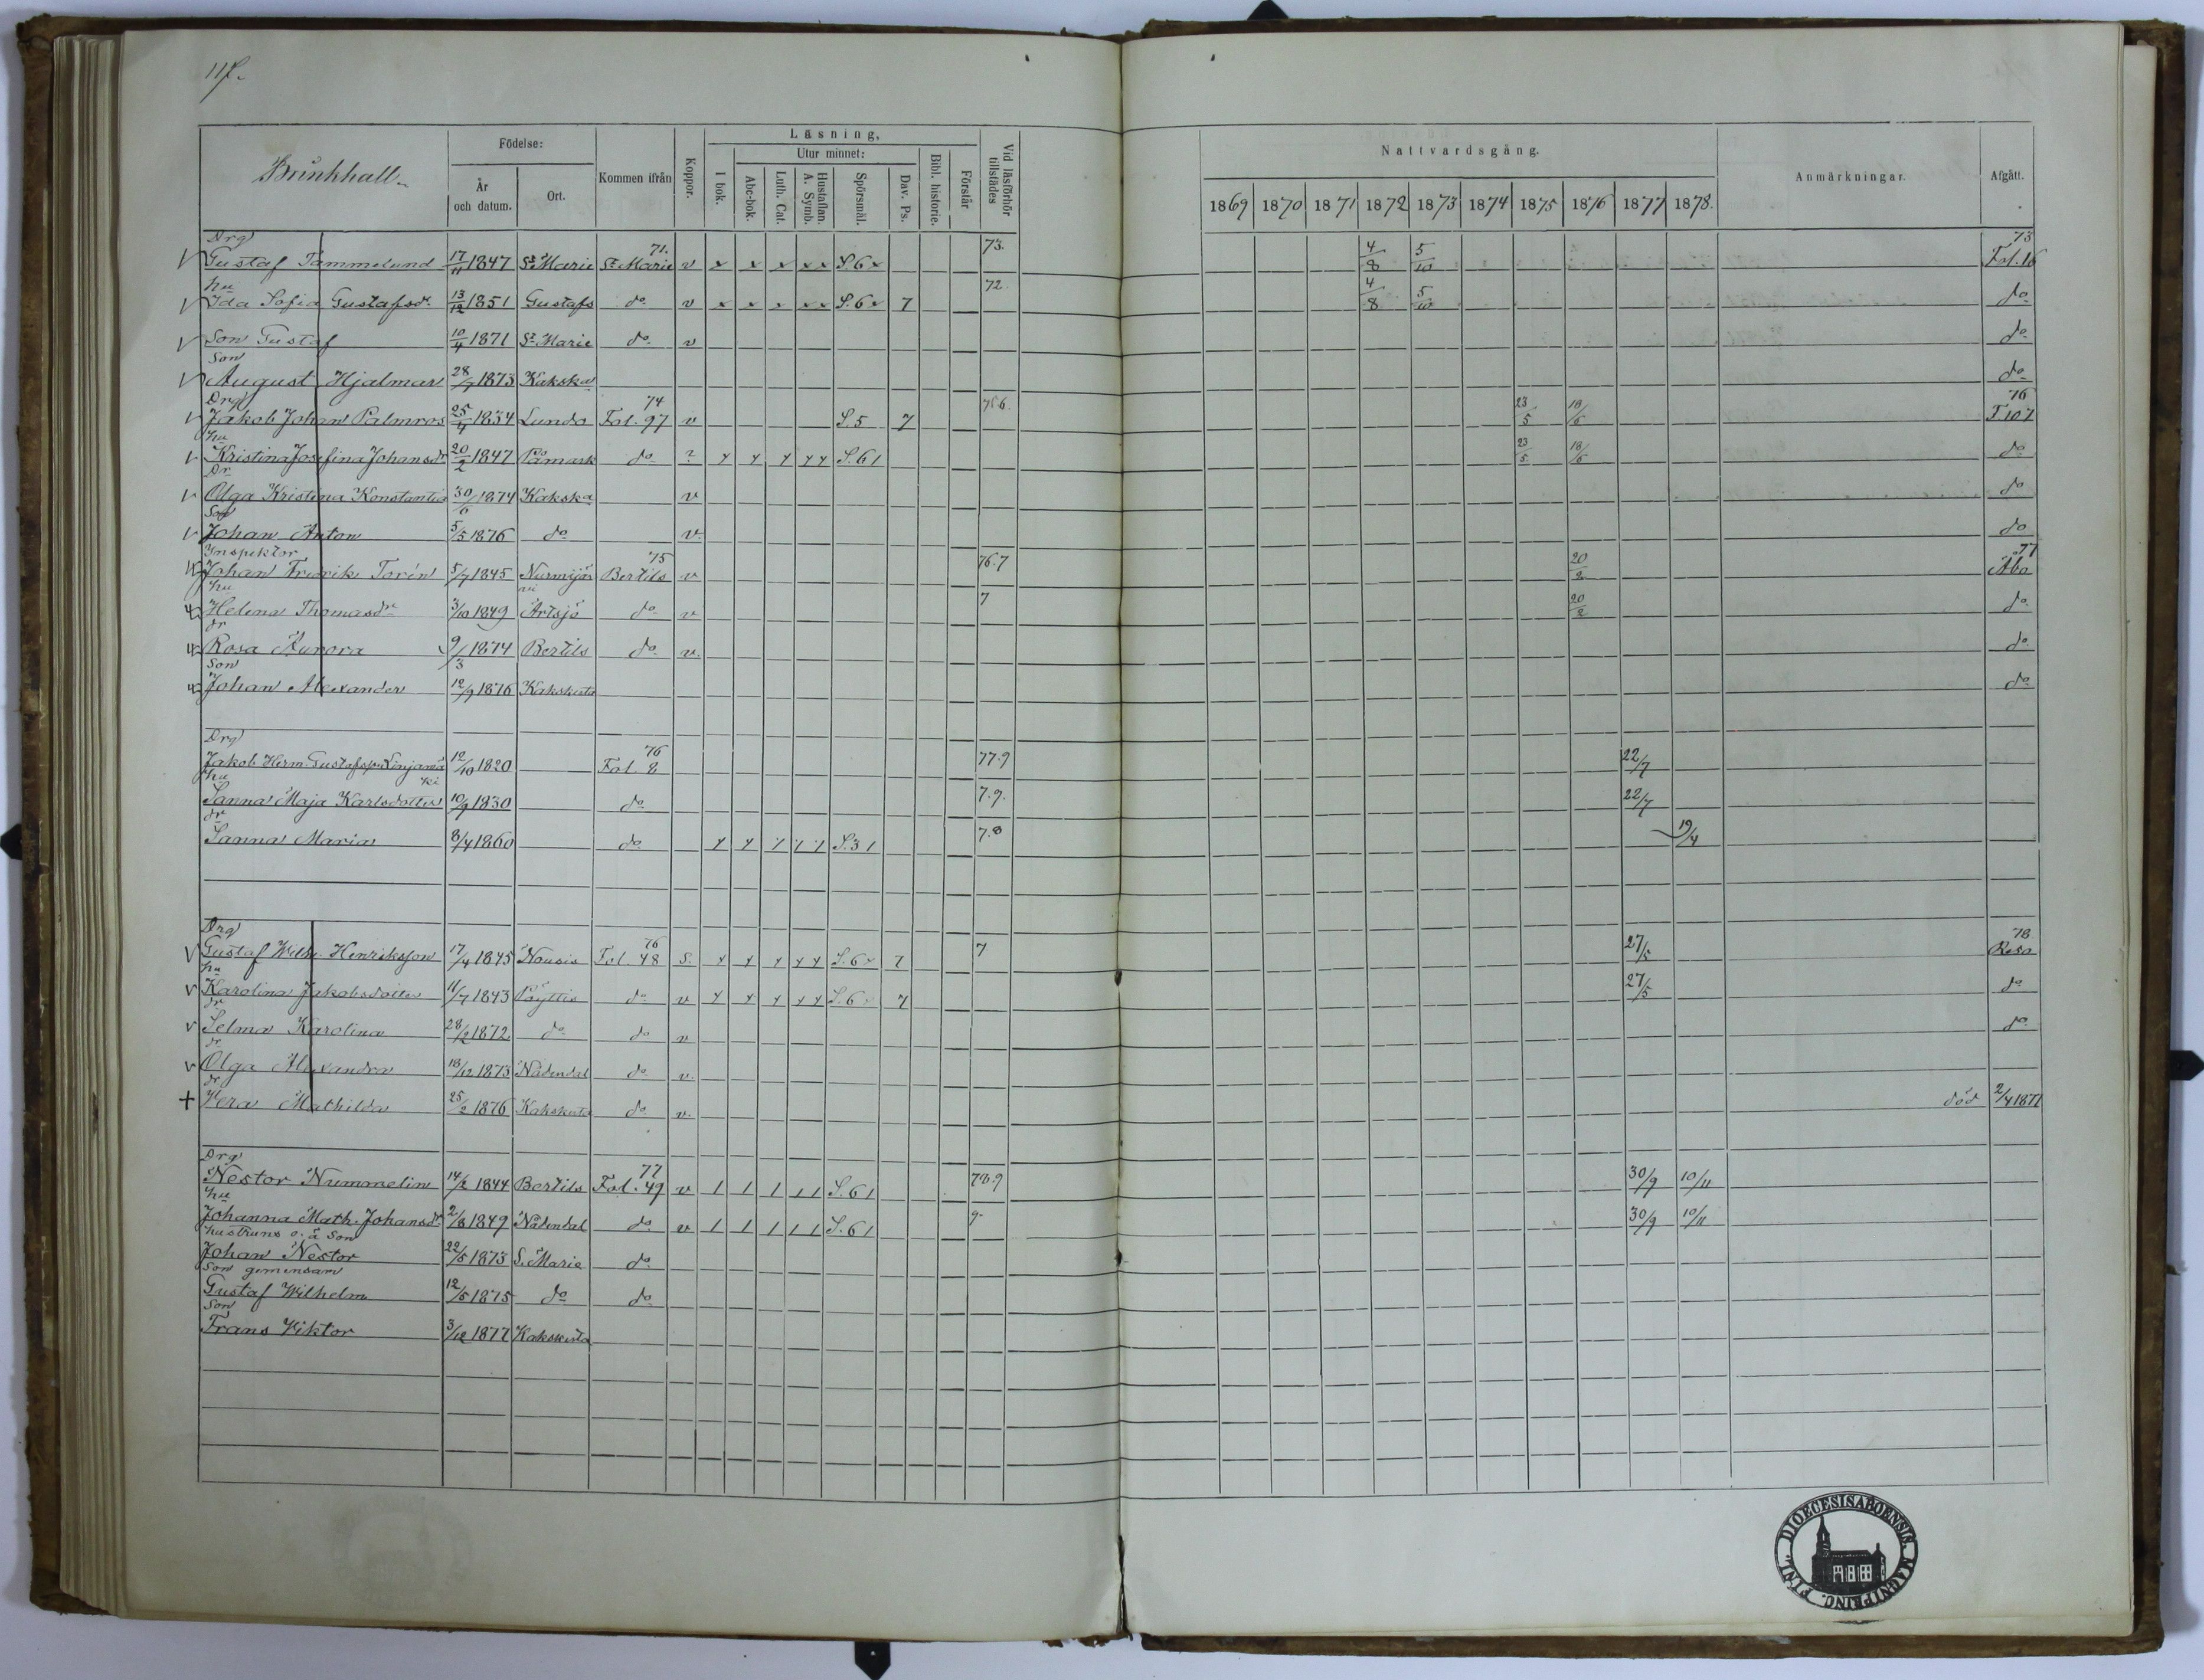 Brinkhall
Födelse: Kommen ifrån Koppor. Läsning, Vid läsförhör tillstädes
År och datum. Ort. I bok. Utur minnet: Abc-bok. Luth. Cat. Hustaflan. A. Symb. Spörsmål. Dav. Ps. Bibl. historie. Förstår
Nattvardsgång. Anmärkningar. Afgått.
1869 1870 1871 1872 1873 1874 1875 1876 1877 1878.
Drg 71. 73. 73
Gustaf Tammelund 17/11 1847 St Marie St Marie v x x x x x S. 6 x 4/8 5/10 Fol. 16
hu 72.
Ida Sofia Gustafsdr 13/12 1851 Gustafs do v x x x x x S. 6 x 7 4/8 5/10 do
Son Gustaf 10/4 1871 St Marie do v do
Son
August Hjalmar 28/7 1873 Kakska do
Drg 74 756. 76
Jakob Johan Palmros 25/4 1834 Lundo Fol. 97 v S. 5 7 23/5 18/6 F 107
hu
Kristina Josefina Johansdr 20/2 1847 Påmark do ? S. 6 1 23/5 18/6 do
Dr
Olga Kristina Konstantia 30/6 1874 Kakska v do
Son
Johan Anton 5/5 1876 do v. do
Inspektor 75 77
Johan Fredrik Torén 5/7 1845 Nurmijärvi Bertils v 76.7 20/2 Åbo
hu
Helena Thomasdr 3/10 1849 Artsjö do v 7 20/2 do
dr
Rosa Aurora 9/3 1874 Bertils do v. do
Son
Johan Alexander 12/9 1876 Kakskerta do
Drg 76
Jakob Herm Gustafsson Linjamäki 12/10 1820 Fol. 8 77.9 22/7
hu
Sanna Maja Karlsdotter 10/9 1830 do 7.9. 22/7
dr
Sanna Maria 8/4 1860 do S. 3 1 7.8 19/4
Drg 76 78
Gustaf Wilh. Henriksson 17/4 1845 Nousis Fol. 48 S. S. 6 x 7 7 27/5 Reso
hu
Karolina Jakobsdotter 11/7 1843 Pöyttis do v S. 6 7 27/5 do
dr
Selma Karolina 28/2 1872 do do v do
dr
Olga Alexandra 18/12 1873 Nådendal do v.
dr
+ Vera Mathilda 25/2 1876 Kakskerta do v. död 2/4 1877
Drg 77
Nestor Nummelin 14/2 1844 Bertils Fol. 49 v 1 1 1 1 1 S. 6 1 78.9 30/9 10/11
hu
Johanna Math. Johansdr 2/8 1849 Nådendal do v 1 1 1 1 1 S. 6 1 9. 30/9 10/11
hustruns o. ä son
Johan Nestor 22/5 1873 S. Marie do
Son gemensam
Gustaf Wilhelm 12/5 1875 do do
Son
Frans Viktor 3/12 1877 Kakskerta
DIOECESIS ABOENSIS. MAGNI PRINC. FINL.